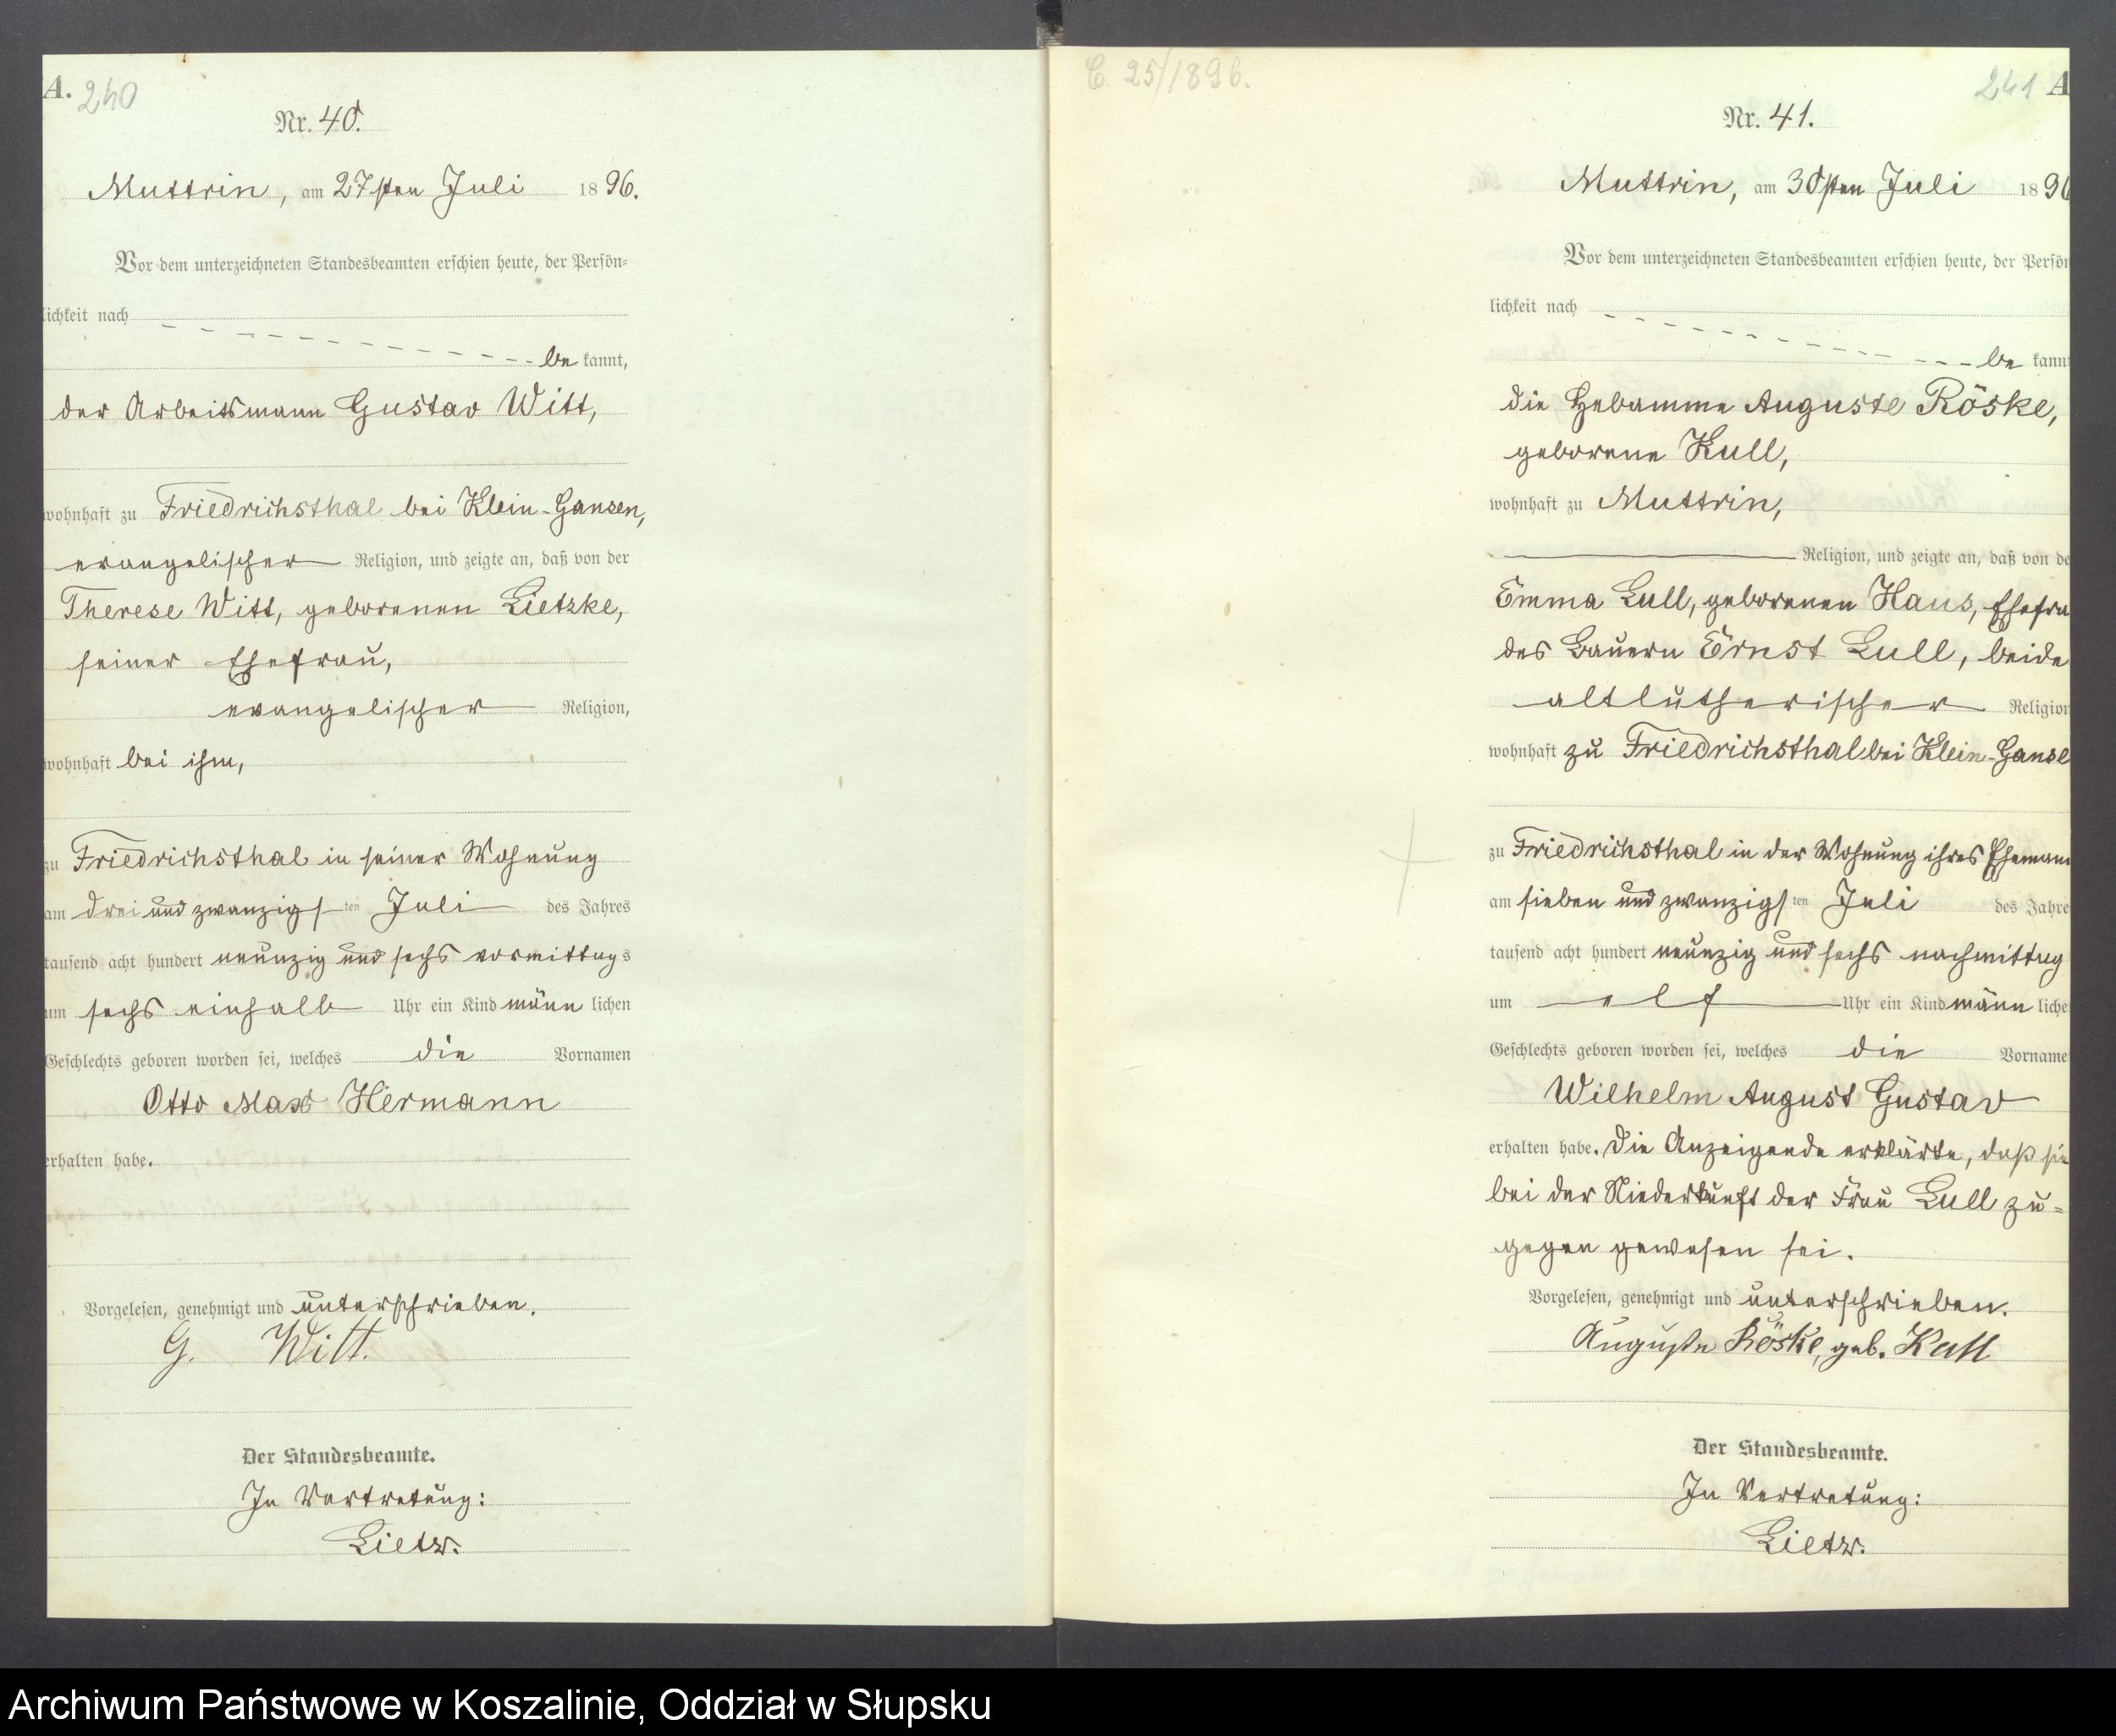 A. 240
Nr. 40.
Muttrin, am 27sten Juli 1896.
Vor dem unterzeichneten Standesbeamten erschien heute, der Persön-
lichkeit nach
be kannt,
der Arbeitsmann Gustav Witt,
wohnhaft zu Friedrichsthal bei Klein-Gansen,
evangelischer Religion, und zeigte an, daß von der
Therese Witt, geborenen Lietzke,
seiner Ehefrau,
evangelischer Religion,
wohnhaft bei ihm,
zu Friedrichsthal in seiner Wohnung
am drei und zwanzigsten Juli des Jahres
tausend acht hundert neunzig und sechs vormittags
um sechs einhalb Uhr ein Kind männ lichen
Geschlechts geboren worden sei, welches die Vornamen
Otto Max Hermann
erhalten habe.
Vorgelesen, genehmigt und unterschrieben.
G. Witt.
Der Standesbeamte.
In Vertretung:
Lietz.
C. 25/1896.
241 A
Nr. 41.
Muttrin, am 30sten Juli 1896
Vor dem unterzeichneten Standesbeamten erschien heute, der Persön
lichkeit nach
be kannt
die Hebamme Auguste Röske,
geborene Kull,
wohnhaft zu Muttrin,
Religion, und zeigte an, daß von de
Emma Lull, geborenen Haus, Ehefra
des Bauern Ernst Lull, beide
altlutherischer Religion
wohnhaft zu Friedrichsthal bei Klein-Ganse
zu Friedrichsthal in der Wohnung ihres Ehemann
am sieben und zwanzigsten Juli des Jahre
tausend acht hundert neunzig und sechs nachmittag
um elf Uhr ein Kind männ liche
Geschlechts geboren worden sei, welches die Vorname
Wilhelm August Gustav
erhalten habe. Die Anzeigende erklärte, daß sie
bei der Niederkunft der Frau Lull zu-
gegen gewesen sei.
Vorgelesen, genehmigt und unterschrieben.
Auguste Röske, geb. Kull
Der Standesbeamte.
In Vertretung:
Lietz.
Archiwum Państwowe w Koszalinie, Oddział w Słupsku